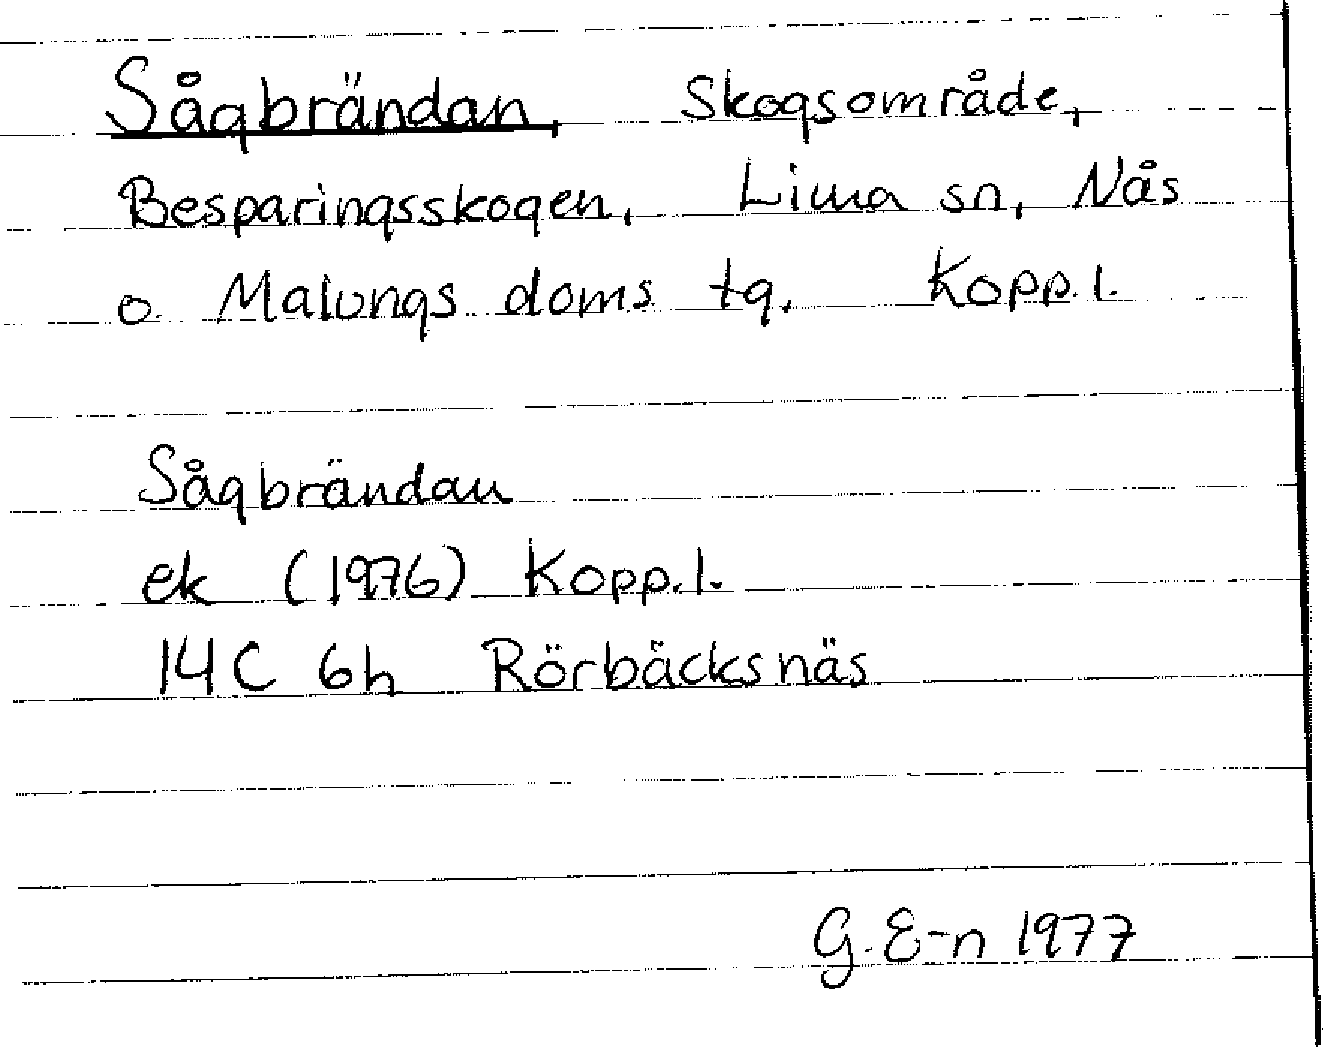 Sågbrändan, Skogsområde,
Besparingsskogen, Lima sn, Nås
o Malungs doms tg. Kopp.l.
Sågbrändan
ek (1976) Kopp.l.
14C 6h Rörbäcksnäs
G. E-n 1977